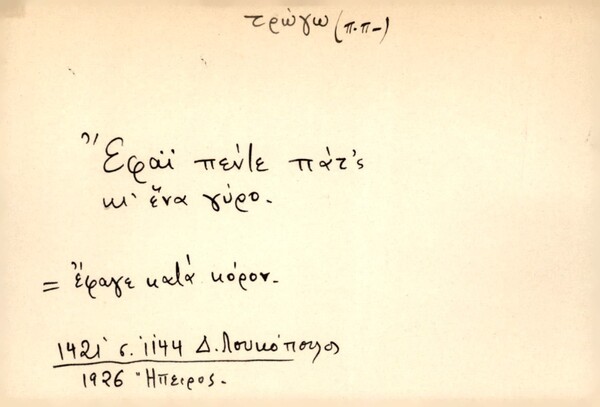 τρώγω (π.π–)
Ἔφαϊ πέντε πάτ'ς
κι' ἕνα γύρο.
= Ἔφαγε κατά κόρον.
1421 σ. 1144 Δ. Λουκόπουλος
1926 Ἤπειρος.